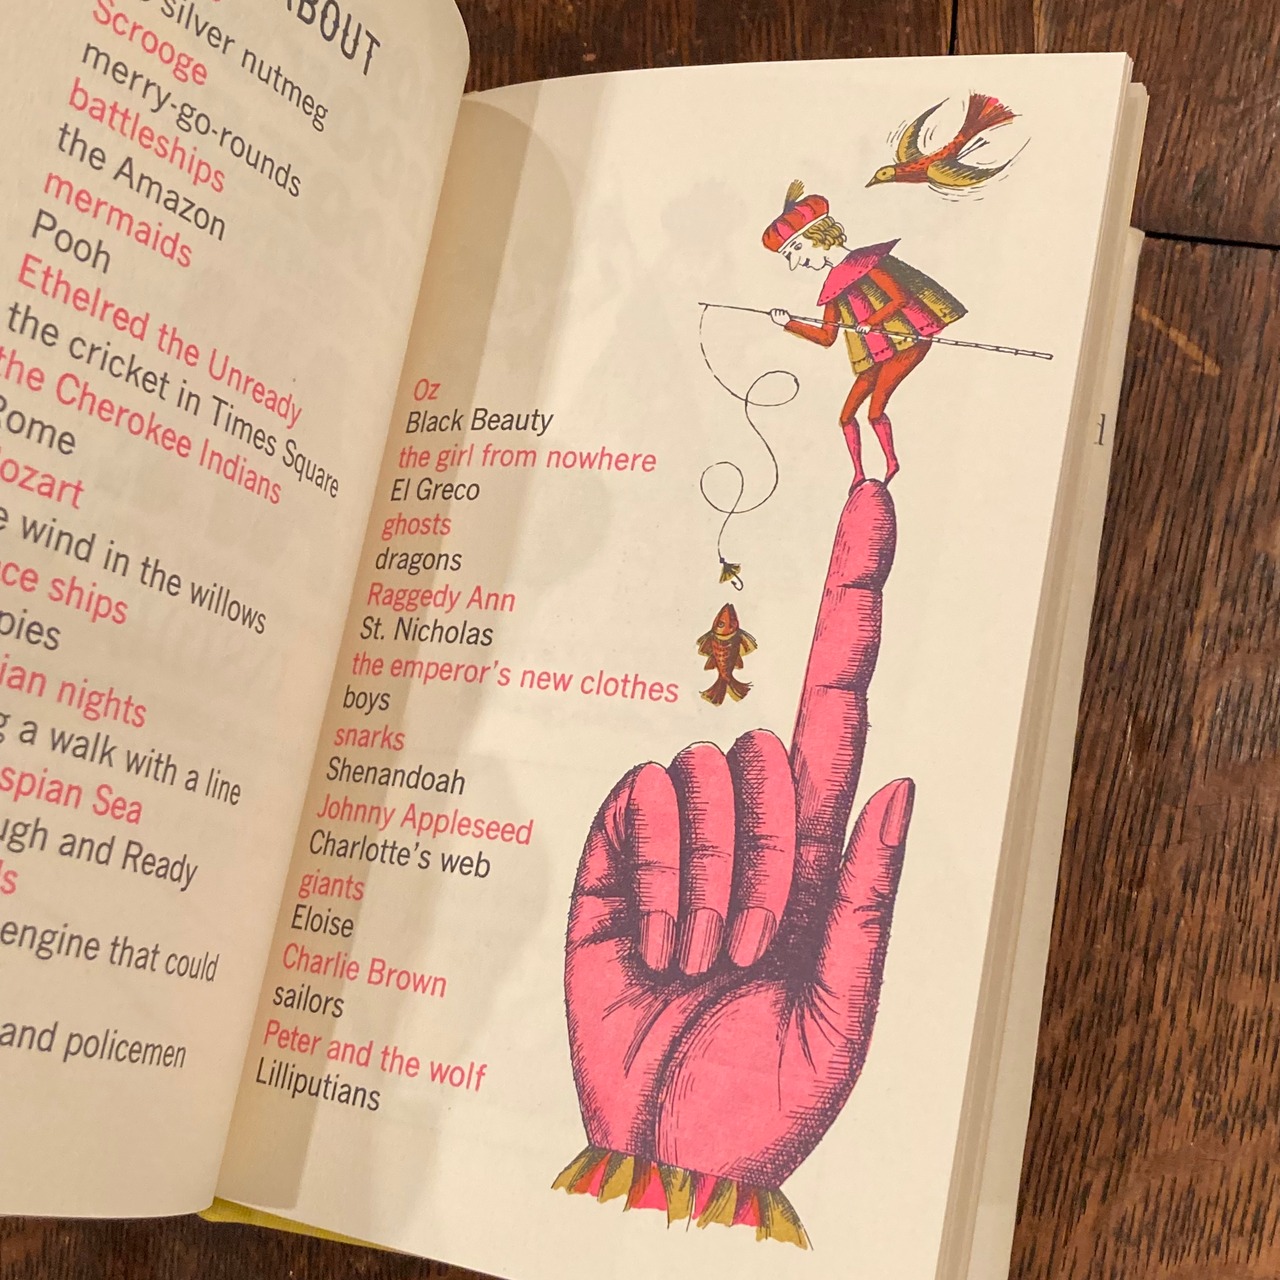 ABOUT
silver nutmeg
Scrooge
merry-go-rounds
battleships
the Amazon
mermaids
Pooh
Ethelred the Unready
the cricket in Times Square
the Cherokee Indians
Rome
ozart
wind in the willows
ce ships
pies
ian nights
g a walk with a line
spian Sea
ugh and Ready
ls
engine that could
and policemen
Oz
Black Beauty
the girl from nowhere
El Greco
ghosts
dragons
Raggedy Ann
St. Nicholas
the emperor's new clothes
boys
snarks
Shenandoah
Johnny Appleseed
Charlotte's web
giants
Eloise
Charlie Brown
sailors
Peter and the wolf
Lilliputians